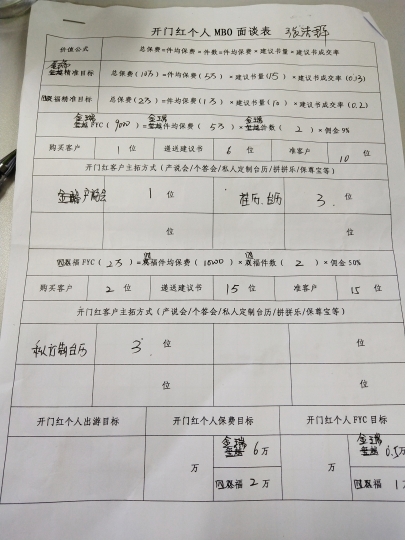 开门红个人 MBO 面谈表
价值公式 总保费=件均保费×件数=件均保费×建议书量×建议书成交率
金瑞精准目标 总保费(10万)=件均保费(5万)×建议书量(15)×建议书成交率(0.13)
福精准目标 总保费(2万)=件均保费(1万)×建议书量(10)×建议书成交率(0.2)
金瑞FYC(9000)=金瑞件均保费(5万)×金瑞件数(2)×佣金9%
购买客户 1 位 递送建议书 6 位 准客户 10 位
开门红客户主拓方式(产说会/个答会/私人定制台历/拼拼乐/保尊宝等)
产说会 1 位 台历 3 位
位 位
福FYC(2万)=福件均保费(10000)×福件数(2)×佣金50%
购买客户 2 位 递送建议书 15 位 准客户 15 位
开门红客户主拓方式(产说会/个答会/私人定制台历/拼拼乐/保尊宝等)
私人定制台历 3 位 位
位 位
开门红个人出游目标 开门红个人保费目标 开门红个人 FYC 目标
万 金瑞 6万 万 金瑞 0.5万
福 2万 福 1